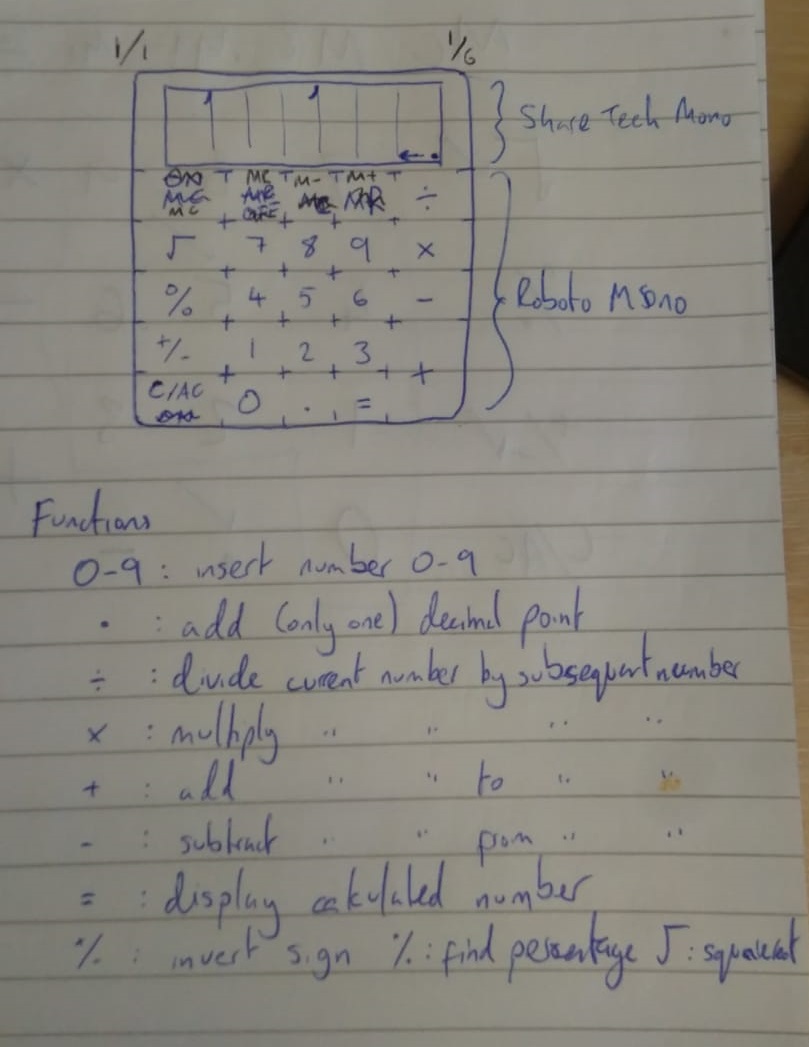 1/1 1/6
Share Tech Mono
MC MR M- M+ ÷
√ 7 8 9 ×
% 4 5 6 -
Roboto Mono
+/- 1 2 3 +
C/AC 0 . =
Functions
0-9 : insert number 0-9
. : add (only one) decimal point
÷ : divide current number by subsequent number
× : multiply " " " "
+ : add " " to " "
- : subtract " " from " "
= : display calculated number
+/- : invert sign % : find percentage √ : squareroot